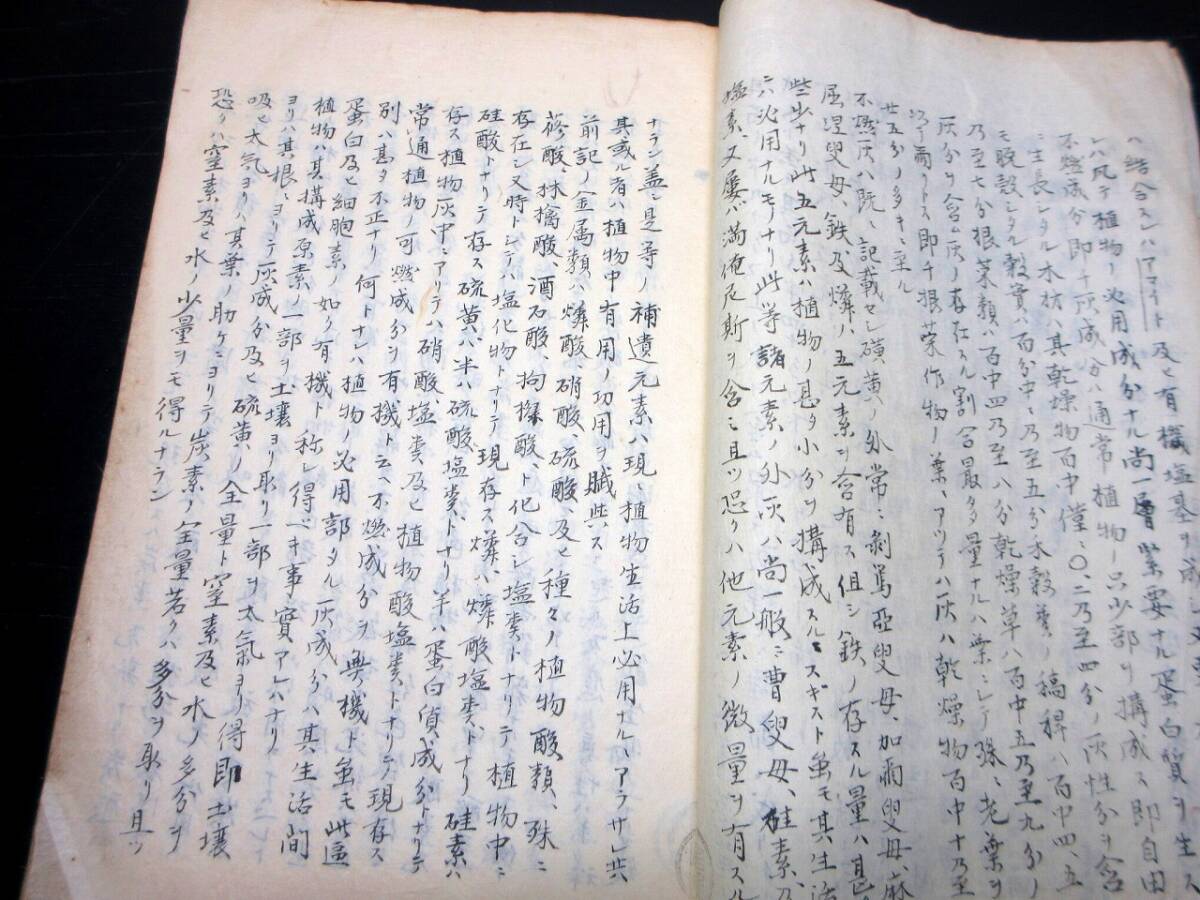 ハ結合スレハアマイト及ヒ有機塩基ヲ成
植物ノ必用成分ナル尚一層緊要ナル蛋白質ヲ生ス
不燃成分即チ灰成分ハ通常植物ノ只少部ヲ搆成ス即自由
ニ生長シタル木材ハ其乾燥物百中僅ニ〇、二乃至四分ノ灰性分ヲ含
モ脱殻シタル穀實ハ百分中ニ乃至五分禾穀類ノ稿稈ハ百中四、五
乃至七分根菜類ハ百中四乃至八分乾燥草ハ百中五乃至九分ノ
灰分ヲ含ム灰ノ存在スル割合最多量ナルハ葉ニシテ殊ニ老葉ヲ
然リトス即チ根菜作物ノ葉ニアツテハ灰ハ乾燥物百中十乃至
廿五分ノ多キニ至ル
不燃灰ハ既ニ記載セシ磺黄ノ外常ニ剥篤亞叟母、加爾叟母、麻
屈涅叟母、鉄及燐ノ五元素ヲ含有ス但シ鉄ノ存スル量ハ甚
些少ナリ此五元素ハ植物ノ甚タ小分ヲ搆成スルニスギスト虽モ其生活
ニ必用ナルモノナリ此等諸元素ノ外灰ハ尚一般ニ曹叟母、硅素、及
塩素、又屡バ満俺尼斯ヲ含ミ且ツ恐クハ他元素ノ微量ヲ有スル
ナラン盖シ是等ノ補遺元素ハ現ニ植物生活上必用ナルニアラサレ共
其或ル者ハ植物中有用ノ功用ヲ賦與ス
前記ノ金属類ハ燐酸、硝酸、硫酸、及ヒ種々ノ植物酸類、殊ニ
蓚酸、林檎酸、酒石酸、拘櫞酸、ト化合シ塩類トナリテ植物中ニ
存在シ又時トシテハ塩化物トナリテ現存ス燐ハ燐酸塩類トナリ硅素ハ
硅酸トナリテ存ス硫黄ハ半ハ硫酸塩類トナリ半ハ蛋白質ノ成分トナリテ
存ス植物灰中ニアリテハ硝酸塩類及ヒ植物酸塩類トナリテ現存ス
常通植物ノ可燃成分ヲ有機ト云ヘ不燃成分ヲ無機ト虽モ此區
別ハ甚タ不正ナリ何トナレハ植物ノ必用部タル灰成分ハ其生活間
蛋白及ヒ細胞素ノ如ク有機ト称シ得ベキ事實アレハナリ
植物ハ其搆成原素ノ一部ヲ土壤ヨリ取リ一部ヲ太氣ヨリ得即土壤
ヨリハ其根ニヨリテ灰成分及ヒ硫黄ノ全量ト窒素及ヒ水ノ多分ヲ
吸ヒ太气ヨリハ其葉ノ助ケニヨリテ炭素ノ全量若クハ多分ヲ取リ且ツ
恐クハ窒素及ヒ水ノ少量ヲモ得ルナラン